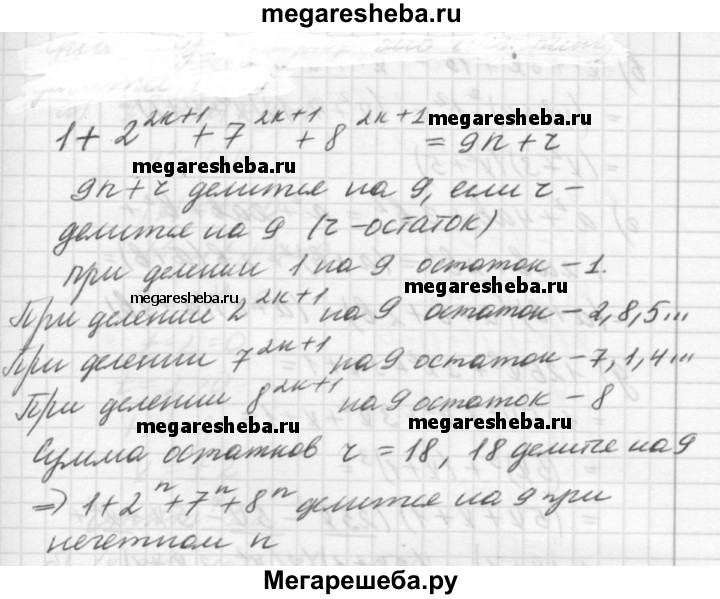 megaresheba.ru
1 + 2^{2k+1} + 7^{2k+1} + 8^{2k+1} = 9n + r
megaresheba.ru
megaresheba.ru
9n + r делится на 9, если r –
делится на 9 (r – остаток)
при делении 1 на 9 остаток – 1.
megaresheba.ru megaresheba.ru
При делении 2^{2k+1} на 9 остаток – 2, 8, 5...
При делении 7^{2k+1} на 9 остаток – 7, 1, 4...
При делении 8^{2k+1} на 9 остаток – 8
megaresheba.ru megaresheba.ru
Сумма остатков r = 18, 18 делится на 9
⇒ 1 + 2^n + 7^n + 8^n делится на 9 при
нечетном n
Мегарешеба.ру